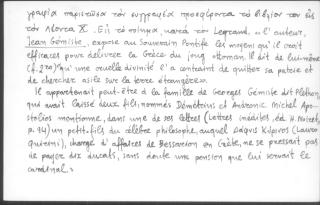 γραφία παριστῶσα τὸν συγγραφέα προσφέροντα τὸ βιβλίον του εἰς
τὸν Λέοντα Χ. Εἰς τὸ ποίημα κατὰ τὸν Legrand. «L'auteur,
Jean Gémiste, expose au Souverain Pontife les moyens qu'il croit
efficaces pour délivrer la Grèce du joug ottoman. Il dit de lui-même
(f. 270) "qu'une cruelle divinité l'a contraint de quitter sa patrie et
de chercher asile sur la terre étrangère».
Il appartenait peut-être à la famille de Georges Gémiste dit Pléthon,
qui avait laissé deux fils, nommés Démétrius et Andronic. Michel Apo-
stolios mentionne, dans une de ses lettres (Lettres inédites, éd. H. Noiret,
p. 94) un petit-fils du célèbre philosophe, auquel Λαῦρος Κυρῖνος (Lauro
Quirini), chargé d'affaires de Bessarion en Crète, ne se pressait pas
de payer dix ducats, sans doute une pension que lui servait le
cardinal.»